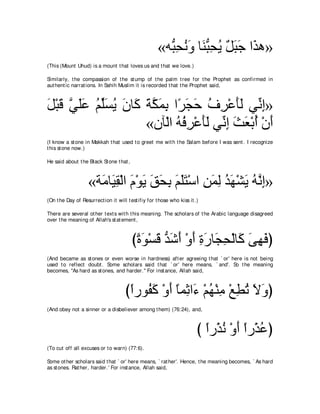 «هذَا جَبَلٌ يُحِبُّنَا وَنُحِبُّه»
(This (Mount Uhud) is a mount that loves us and that we love.)
Similarly, the compassion of the stump of the palm tree for the Prophet as confirmed in
authentic narrations. In Sahih Muslim it is recorded that the Prophet said,
«إِنِّي لَأَعْرِفُ حَجَرًا بِمَكَّةَ كَانَ يُسَلِّمُ عَلَيَّ قَبْلَ
أَنْ أُبْعَثَ إِنِّي لَأَعْرِفُهُ الْآن»
(I know a stone in Makkah that used to greet me with the Salam before I was sent. I recognize
this stone now.)
He said about the Black Stone that,
«إِنَّهُ يَشْهَدُ لِمَنِ اسْتَلَمَ بِحَقَ يَوْمَ الْقِيَامَة»
(On the Day of Resurrection it will testify for those who kiss it.)
There are several other texts with this meaning. The scholars of the Arabic language disagreed
over the meaning of Allah's statement,
(فَهِىَ كَالْحِجَارَةِ أَوْ أَشَدُّ قَسْوَةً)
(And became as stones or even worse in hardness) after agreeing that `or' here is not being
used to reflect doubt. Some scholars said that `or' here means, `and'. So the meaning
becomes, "As hard as stones, and harder." For instance, Allah said,
(وَلاَ تُطِعْ مِنْهُمْ ءَاثِماً أَوْ كَفُوراً)
(And obey not a sinner or a disbeliever among them) (76:24), and,
(عُذْراً أَوْ نُذْراً )
(To cut off all excuses or to warn) (77:6).
Some other scholars said that `or' here means, `rather'. Hence, the meaning becomes, `As hard
as stones. Rather, harder.' For instance, Allah said,